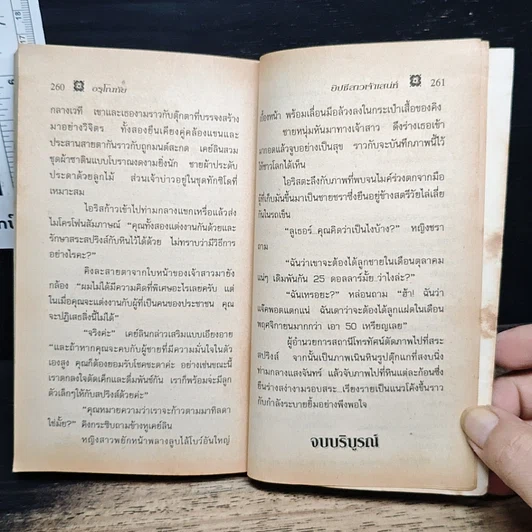 260 อรุโณทัย
กลางเวที เขาและเธองามราวกับตุ๊กตาที่บรรจงสร้าง
มาอย่างวิจิตร ทั้งสองยืนเคียงคู่คล้องแขนและ
ประสานสายตากันราวกับถูกมนต์สะกด เคย์ลินสวม
ชุดผ้าซาตินแบบโบราณงดงามยิ่งนัก ชายผ้าประดับ
ประดาด้วยลูกไม้ ส่วนเจ้าบ่าวอยู่ในชุดทักซิโดที่
เหมาะสม
ไอริสก้าวเข้าไปท่ามกลางแขกเหรื่อแล้วส่ง
ไมโครโฟนสัมภาษณ์ “คุณทั้งสองแต่งงานกันด้วยและ
รักษาสระสปริงส์กับหินไว้ได้ด้วย ไม่ทราบว่ามีวิธีการ
อย่างไรคะ?”
คิงละสายตาจากใบหน้าของเจ้าสาวมายัง
กล้อง “ผมไม่ได้มีความคิดที่พิเศษอะไรเลยครับ แต่
ในเมื่อคุณจะแต่งงานกับผู้ที่เป็นคนของประชาชน คุณ
จะปฏิเสธสิ่งนี้ไม่ได้”
“จริงค่ะ” เคย์ลินกล่าวเสริมแบบเอียงอาย
“และถ้าหากคุณจะคบกับผู้ชายที่มีความมั่นใจในตัว
เองสูง คุณก็ต้องยอมรับโชคชะตาค่ะ อย่างเช่นขณะนี้
เราตกลงใจตัดเค้กและดื่มพันช์กัน เราก็พร้อมจะมีลูก
ตัวเล็กๆให้กับสปริงส์ด้วยค่ะ”
“คุณหมายความว่าเราจะก้าวตามมาทิลดา
ใช่มั้ย?” คิงกระซิบถามข้างหูเคย์ลิน
หญิงสาวพยักหน้าพลางลูบไล้โบว์อันใหญ่
ยิปซีสาวเจ้าเสน่ห์ 261
เบื้องหน้า พร้อมเลื่อนมือล้วงลงในกระเป๋าเสื้อของคิง
ชายหนุ่มหันมาทางเจ้าสาว ดึงร่างเธอเข้า
มากอดแล้วจูบอย่างเป็นสุข ราวกับจะบันทึกภาพนี้ไว้
ให้ชาวโลกได้เห็น
ไอริสตะลึงกับภาพที่พบจนไมค์ร่วงตกจากมือ
ผู้ที่เก็บมันขึ้นมาเป็นชายชราซึ่งยืนอยู่ข้างสตรีวัยไล่เลี่ย
กันในรถเข็น
“ลูเธอร์...คุณคิดว่าเป็นไงบ้าง?” หญิงชรา
ถาม
“ฉันว่าเขาจะต้องได้ลูกชายในเดือนตุลาคม
แน่ๆ เดิมพันกัน 25 ดอลลาร์มั้ย..ว่าไงล่ะ?”
“ฉันเหรอยะ?” หล่อนถาม “ฮ้า! ฉันว่า
แจ๊คพอตแตกแน่ ฉันเดาว่าจะต้องได้ลูกแฝดในเดือน
พฤศจิกายนมากกว่า เอา 50 เหรียญเลย”
ผู้อำนวยการสถานีโทรทัศน์ตัดภาพไปที่สระ
สปริงส์ จากนั้นเป็นภาพเนินหินรูปตุ๊กแกที่สงบนิ่ง
ท่ามกลางแสงจันทร์ แล้วจับภาพไปที่หินแต่ละก้อนซึ่ง
ยืนร่างสง่างามรอบสระ...เรียงรายเป็นแนวโค้งขึ้นราว
กับกำลังระบายยิ้มอย่างพึงพอใจ
จบบริบูรณ์